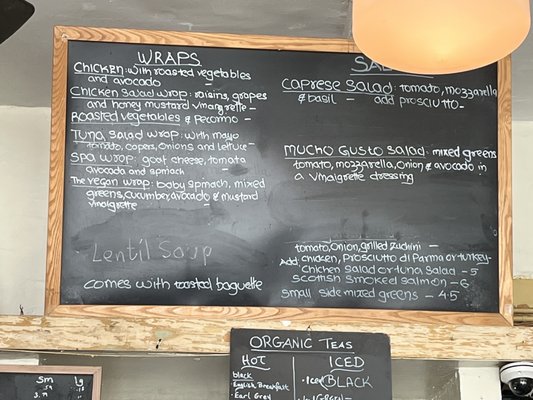 WRAPS
CHICKEN: with roasted vegetables
and avocado
CHICKEN SALAD WRAP: raisins, grapes
and honey mustard vinaigrette -
ROASTED VEGETABLES & PECORINO -
TUNA SALAD WRAP: with mayo
tomato, capers, onions and lettuce -
SPA WRAP: goat cheese, tomato
avocado and spinach -
The VEGAN WRAP: baby spinach, mixed
greens, cucumber, avocado & mustard
vinaigrette -
Lentil Soup
comes with toasted baguette
CAPRESE SALAD: tomato, mozzarella
& basil - add prosciutto -
MUCHO GUSTO SALAD: mixed greens
tomato, mozzarella, onion & avocado in
a vinaigrette dressing
tomato, onion, grilled zuchini -
Add chicken, Prosciutto di Parma or turkey-
Chicken salad or tuna salad - 5
Scottish smoked salmon - 6
small side mixed greens - 4.5
ORGANIC TEAS
HOT
black
English Breakfast
Earl Grey
ICED
Iced BLACK
sm lg